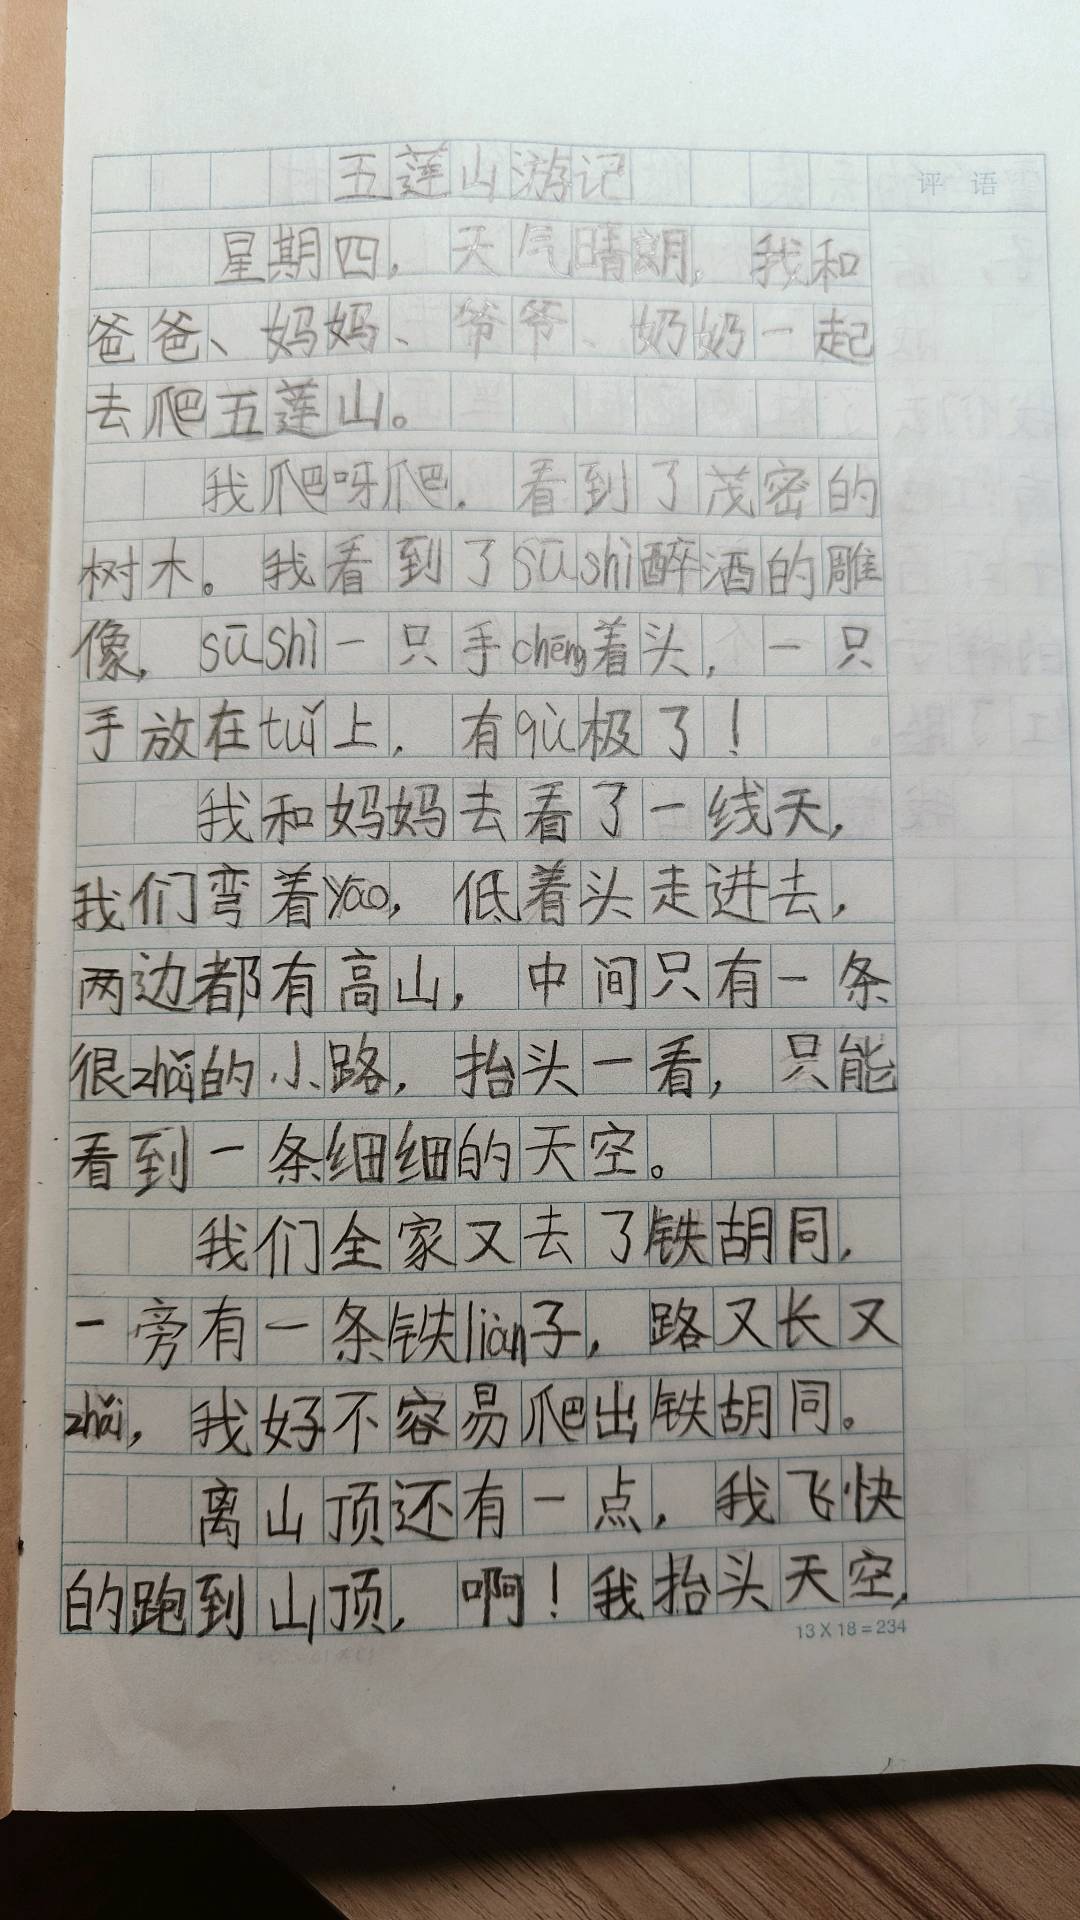 五莲山游记
评语
星期四，天气晴朗，我和
爸爸、妈妈、爷爷、奶奶一起
去爬五莲山。
我爬呀爬，看到了茂密的
树木。我看到了sūshì醉酒的雕
像，sūshì一只手chēng着头，一只
手放在tuǐ上，有qù极了！
我和妈妈去看了一线天，
我们弯着yāo，低着头走进去，
两边都有高山，中间只有一条
很zhǎi的小路，抬头一看，只能
看到一条细细的天空。
我们全家又去了铁胡同，
一旁有一条铁liàn子，路又长又
zhǎi，我好不容易爬出铁胡同。
离山顶还有一点，我飞快
的跑到山顶，啊！我抬头天空，
13×18=234